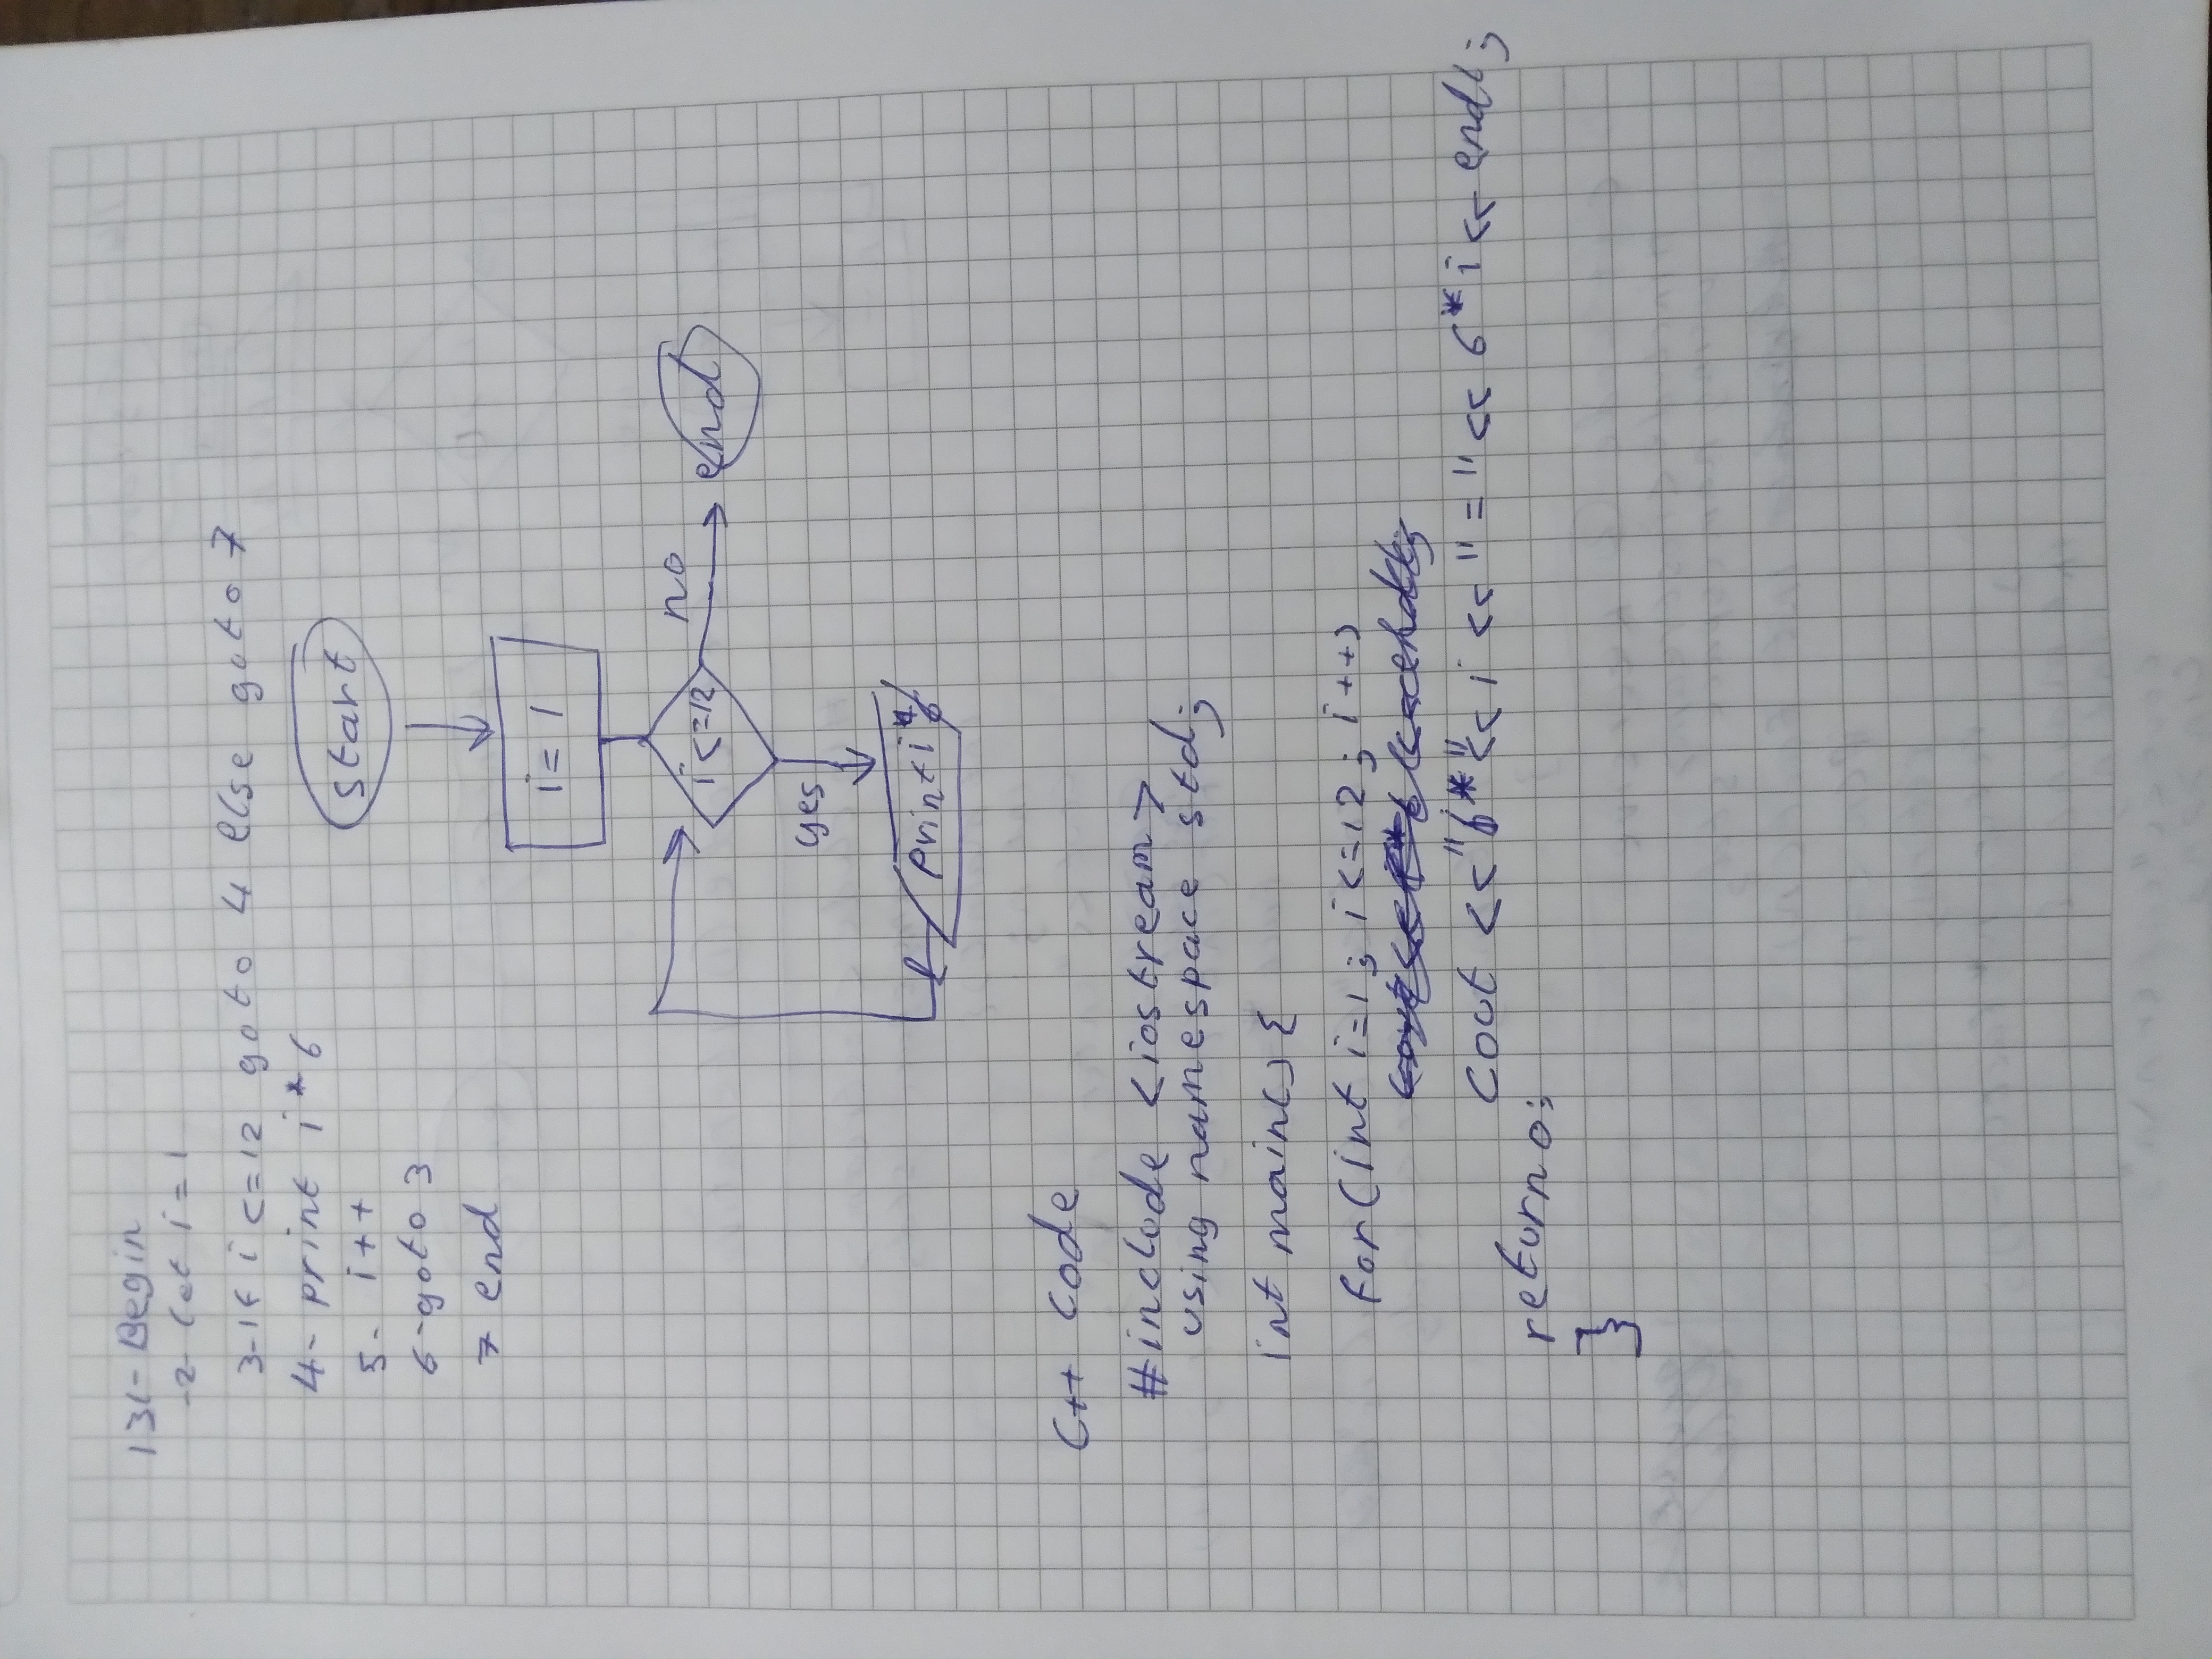 131- Begin
-2- let i = 1
3- If i <= 12 goto 4 else goto 7
4- print i * 6
5- i++
6- goto 3
7 end
start
i = 1
i <= 12
no
end
yes
print i * 6
C++ code
#include <iostream>
using namespace std;
int main() {
for (int i=1; i<=12; i++)
cout << "6*" << i << "=" << 6*i << endl;
return 0;
}